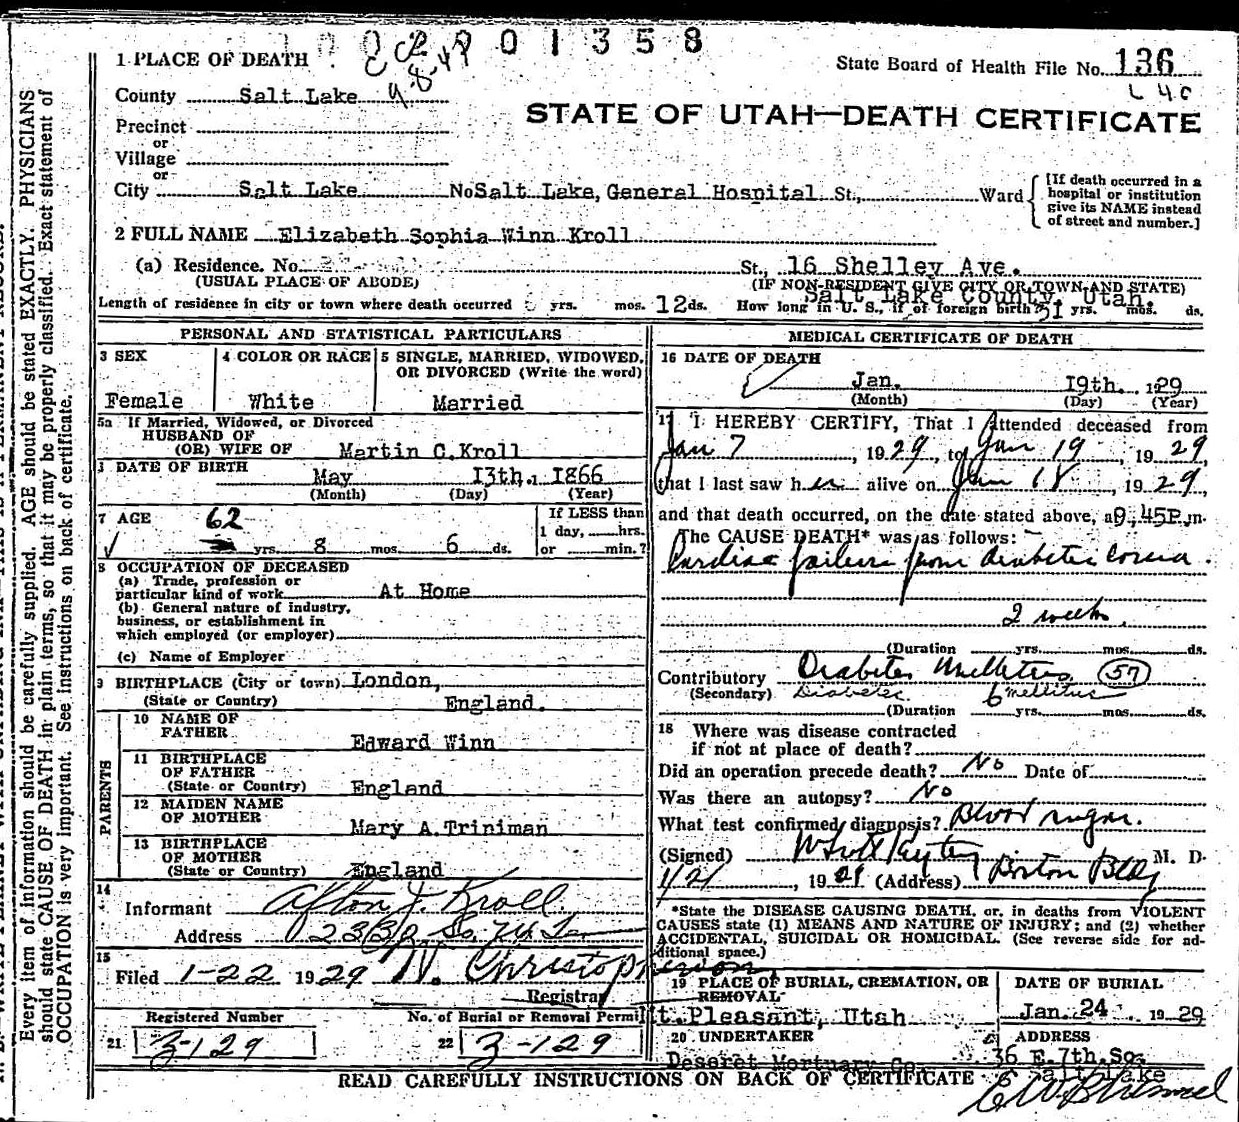 1 PLACE OF DEATH
State Board of Health File No. 136
County Salt Lake
STATE OF UTAH—DEATH CERTIFICATE
Precinct
or
Village
or
City Salt Lake No Salt Lake, General Hospital St., Ward
[If death occurred in a
hospital or institution
give its NAME instead
of street and number.]
2 FULL NAME Elizabeth Sophia Winn Kroll
(a) Residence. No. St., 16 Shelley Ave.
(USUAL PLACE OF ABODE) (IF NON-RESIDENT GIVE CITY OR TOWN AND STATE)
Salt Lake County, Utah.
Length of residence in city or town where death occurred yrs. mos. 12 ds. How long in U. S., if of foreign birth? 51 yrs. mos. ds.
PERSONAL AND STATISTICAL PARTICULARS
3 SEX 4 COLOR OR RACE 5 SINGLE, MARRIED, WIDOWED,
OR DIVORCED (Write the word)
Female White Married
5a If Married, Widowed, or Divorced
HUSBAND OF
(OR) WIFE OF Martin C. Kroll
DATE OF BIRTH
May 13th. 1866
(Month) (Day) (Year)
7 AGE 62 If LESS than
1 day, hrs.
yrs. 8 mos. 6 ds. or min.?
8 OCCUPATION OF DECEASED
(a) Trade, profession or
particular kind of work At Home
(b) General nature of industry,
business, or establishment in
which employed (or employer)
(c) Name of Employer
9 BIRTHPLACE (City or town) London,
(State or Country) England.
PARENTS
10 NAME OF
FATHER Edward Winn
11 BIRTHPLACE
OF FATHER
(State or Country) England
12 MAIDEN NAME
OF MOTHER Mary A. Triniman
13 BIRTHPLACE
OF MOTHER
(State or Country) England
14
Informant Afton J. Kroll
Address
15
Filed 1-22 1929 N. Christopherson
Registrar
Registered Number No. of Burial or Removal Permit
21 3-129 22 3-129
MEDICAL CERTIFICATE OF DEATH
16 DATE OF DEATH
Jan. 19th. 1929
(Month) (Day) (Year)
17 I HEREBY CERTIFY, That I attended deceased from
Jan 7, 1929, to Jan 19, 1929,
that I last saw her alive on Jan 18, 1929,
and that death occurred, on the date stated above, at 9,45P.m.
The CAUSE DEATH* was as follows:
Cardiac failure from diabetic coma.
2 weeks.
(Duration yrs. mos. ds.
Contributory Diabetes Mellitus 57
(Secondary) Diabetes mellitus
(Duration 6 yrs. mos. ds.
18 Where was disease contracted
if not at place of death?
Did an operation precede death? No Date of
Was there an autopsy? No
What test confirmed diagnosis? Blood sugar.
(Signed) M. D.
1/21, 19 (Address) Boston Bldg
*State the DISEASE CAUSING DEATH, or, in deaths from VIOLENT
CAUSES state (1) MEANS AND NATURE OF INJURY; and (2) whether
ACCIDENTAL, SUICIDAL OR HOMICIDAL. (See reverse side for ad-
ditional space.)
19 PLACE OF BURIAL, CREMATION, OR DATE OF BURIAL
REMOVAL
Mt. Pleasant, Utah Jan. 24 1929
20 UNDERTAKER ADDRESS
Deseret Mortuary Co. 36 E. 7th. So.
Salt Lake
READ CAREFULLY INSTRUCTIONS ON BACK OF CERTIFICATE
Every item of information should be carefully supplied. AGE should be stated EXACTLY. PHYSICIANS
should state CAUSE OF DEATH in plain terms, so that it may be properly classified. Exact statement of
OCCUPATION is very important. See instructions on back of certificate.